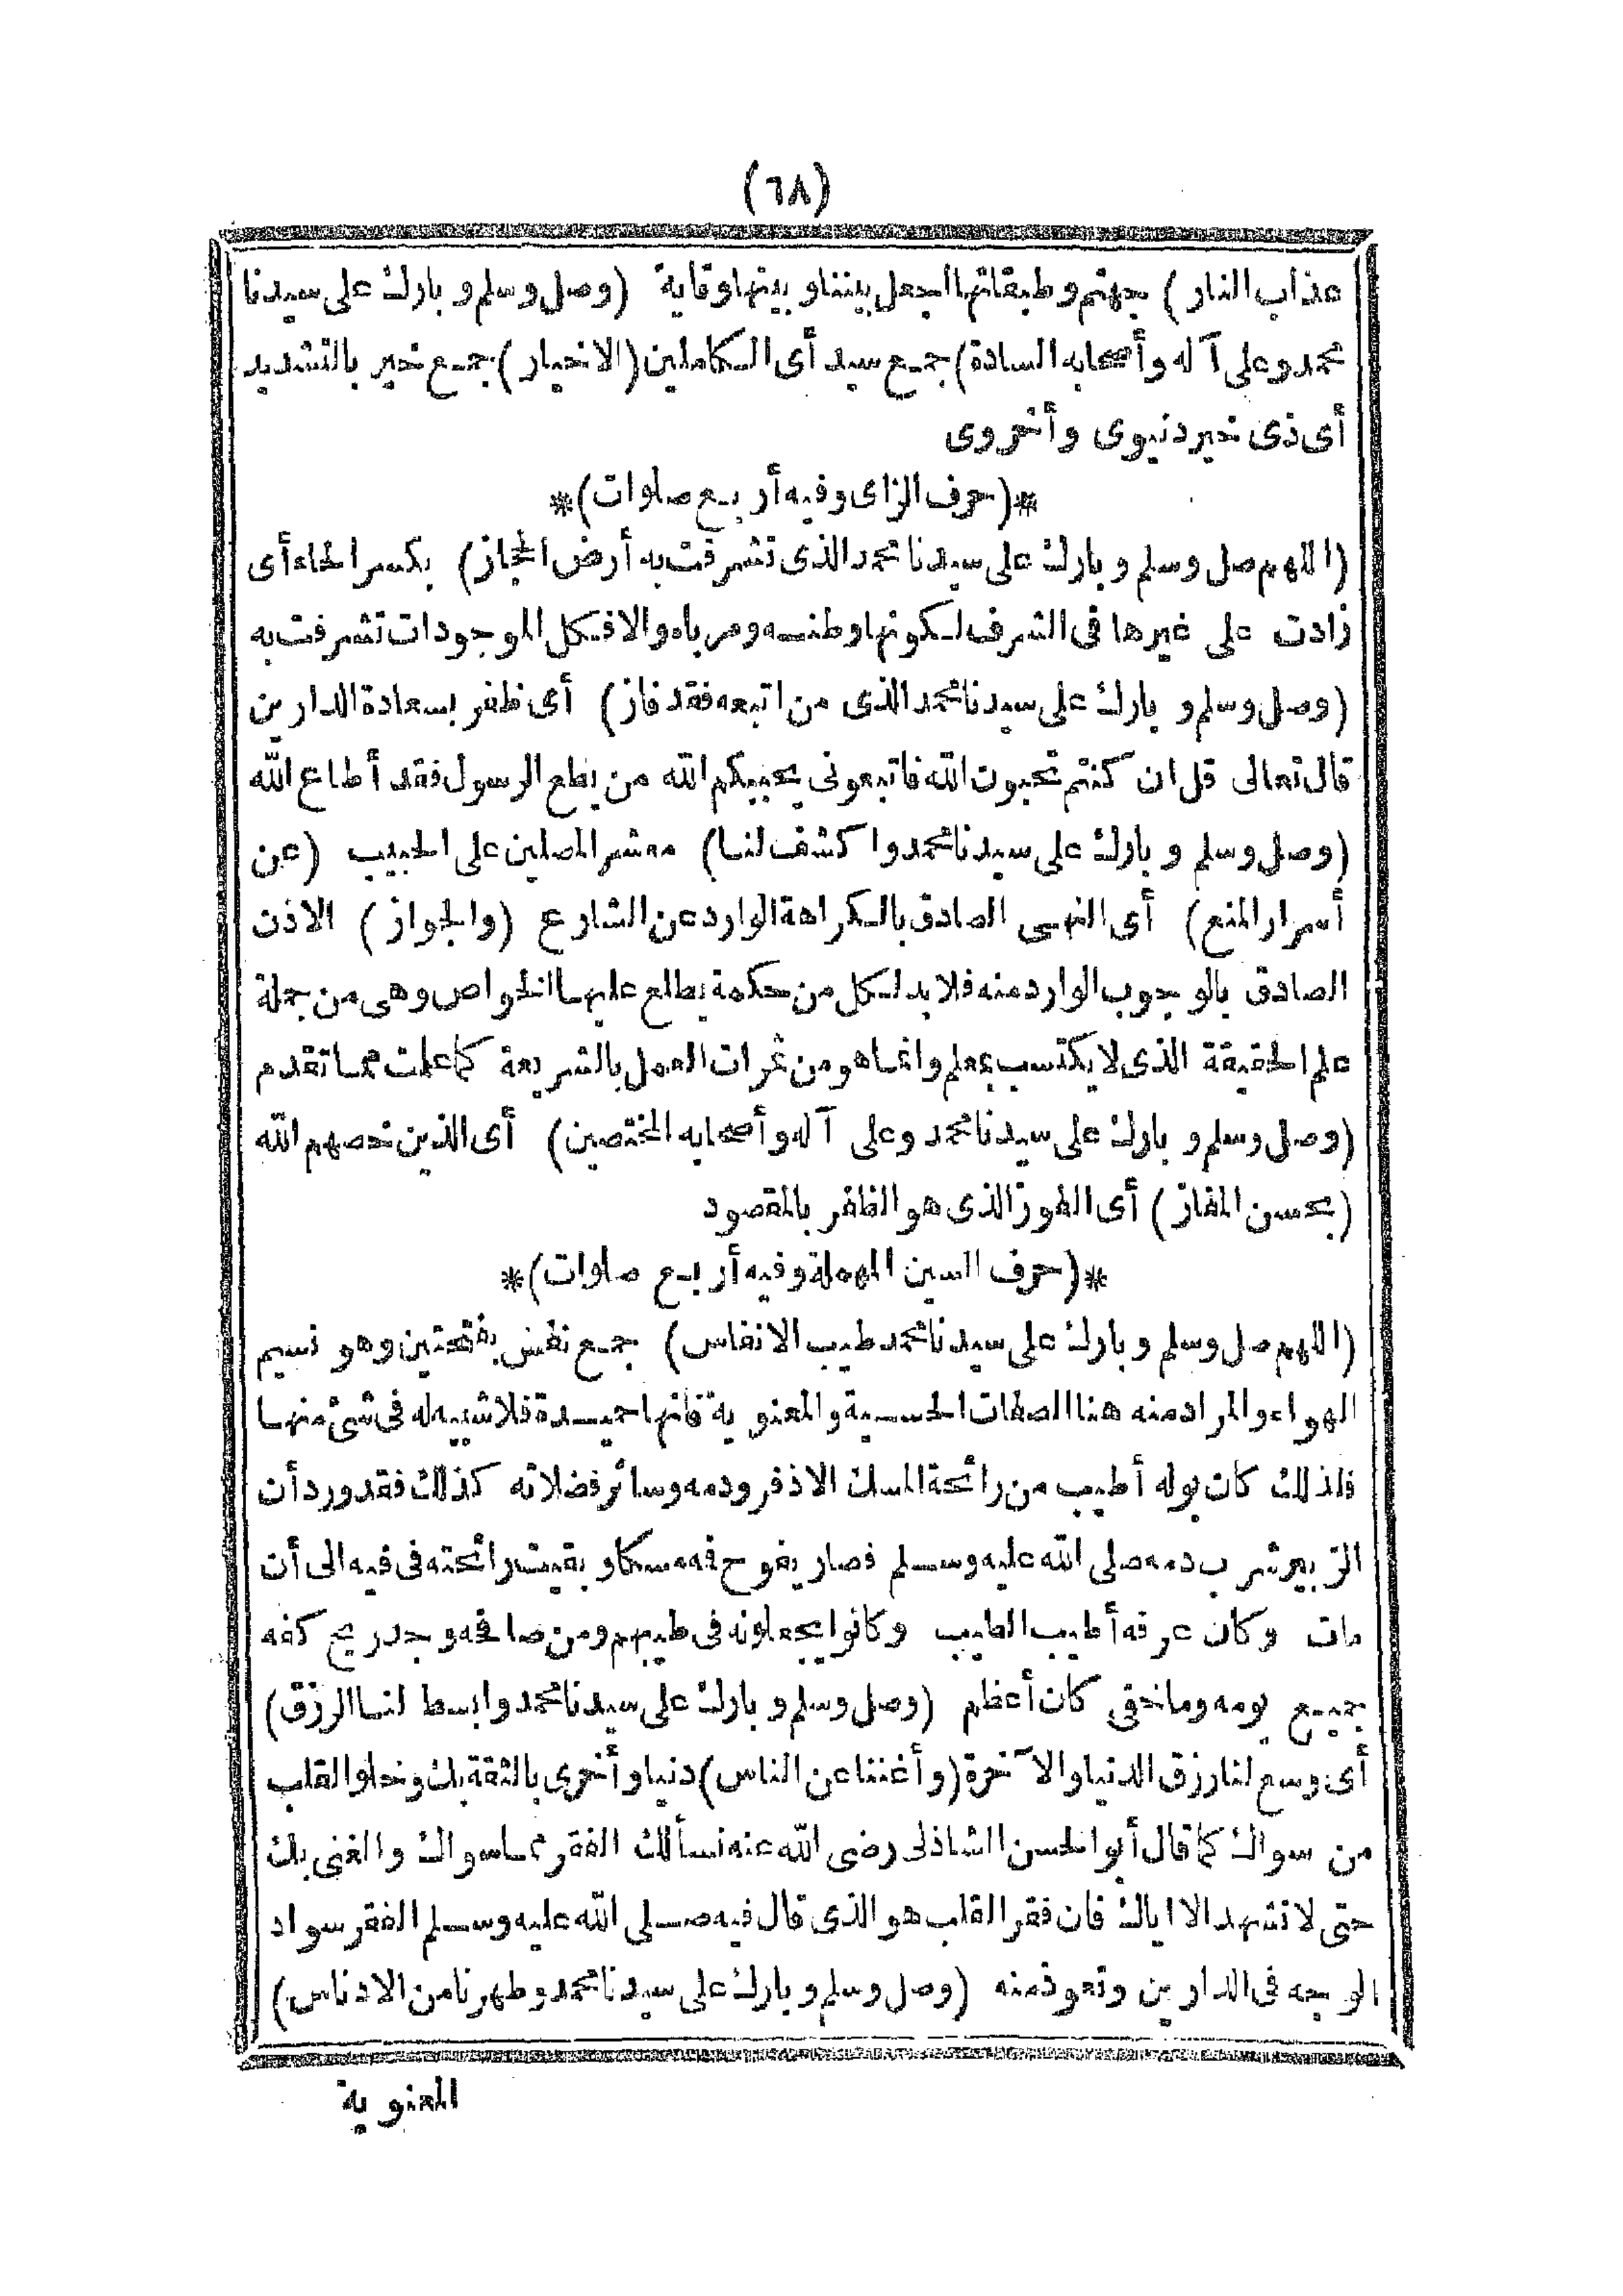 (٦٨)
عذاب النار) جهنم وطبقاتها اجعل بيننا وبينها وقاية (وصل وسلم وبارك على سيدنا
محمد وعلى آله وأصحابه السادة) جمع سيد أى الكاملين (الاخيار) جمع خير بالتشديد
أى ذى خير دنيوى وأخروى
*(حرف الزاى وفيه أربع صلوات)*
(اللهم صل وسلم وبارك على سيدنا محمد الذى تشرفت به أرض الحجاز) بكسر الحاء أى
زادت على غيرها فى الشرف لكونها وطنه ومرباه والا فكل الموجودات تشرفت به
(وصل وسلم وبارك على سيدنا محمد الذى من اتبعه فقد فاز) أى ظفر بسعادة الدارين
قال تعالى قل ان كنتم تحبون الله فاتبعونى يحببكم الله من يطع الرسول فقد أطاع الله
(وصل وسلم وبارك على سيدنا محمد واكشف لنا) معشر المصلين على الحبيب (عن
أسرار المنع) أى النهى الصادق بالكراهة الوارد عن الشارع (والجواز) الاذن
الصادق بالوجوب الوارد منه فلا بد لكل من حكمة يطلع عليها الخواص وهى من جملة
علم الحقيقة الذى لا يكتسب بمعلم وانما هو من ثمرات العمل بالشريعة كما علمت مما تقدم
(وصل وسلم وبارك على سيدنا محمد وعلى آله وأصحابه المختصين) أى الذين خصهم الله
(بحسن المفاز) أى الفوز الذى هو الظفر بالمقصود
*(حرف السين المهملة وفيه أربع صلوات)*
(اللهم صل وسلم وبارك على سيدنا محمد طيب الانفاس) جمع نفس بفتحتين وهو نسيم
الهواء والمراد منه هنا الصفات الحسية والمعنوية فانها حميدة فلا شبيه له فى شئ منها
فلذلك كان بوله أطيب من رائحة المسك الاذفر ودمه وسائر فضلاته كذلك فقد ورد أن
الزبير شرب دمه صلى الله عليه وسلم فصار يفوح فمه مسكا وبقيت رائحته فى فيه الى أن
مات وكان عرقه أطيب الطيب وكانوا يجعلونه فى طيبهم ومن صافحه وجد ريح كفه
جميع يومه وما خفى كان أعظم (وصل وسلم وبارك على سيدنا محمد وابسط لنا الرزق)
أى وسع لنا رزق الدنيا والآخرة (وأغننا عن الناس) دنيا وأخرى بالثقة بك وخلو القلب
من سواك كما قال أبو الحسن الشاذلى رضى الله عنه نسألك الفقر مما سواك والغنى بك
حتى لا نشهد الا اياك فان فقر القلب هو الذى قال فيه صلى الله عليه وسلم الفقر سواد
الوجه فى الدارين وتعوذ منه (وصل وسلم وبارك على سيدنا محمد وطهرنا من الادناس)
المعنوية